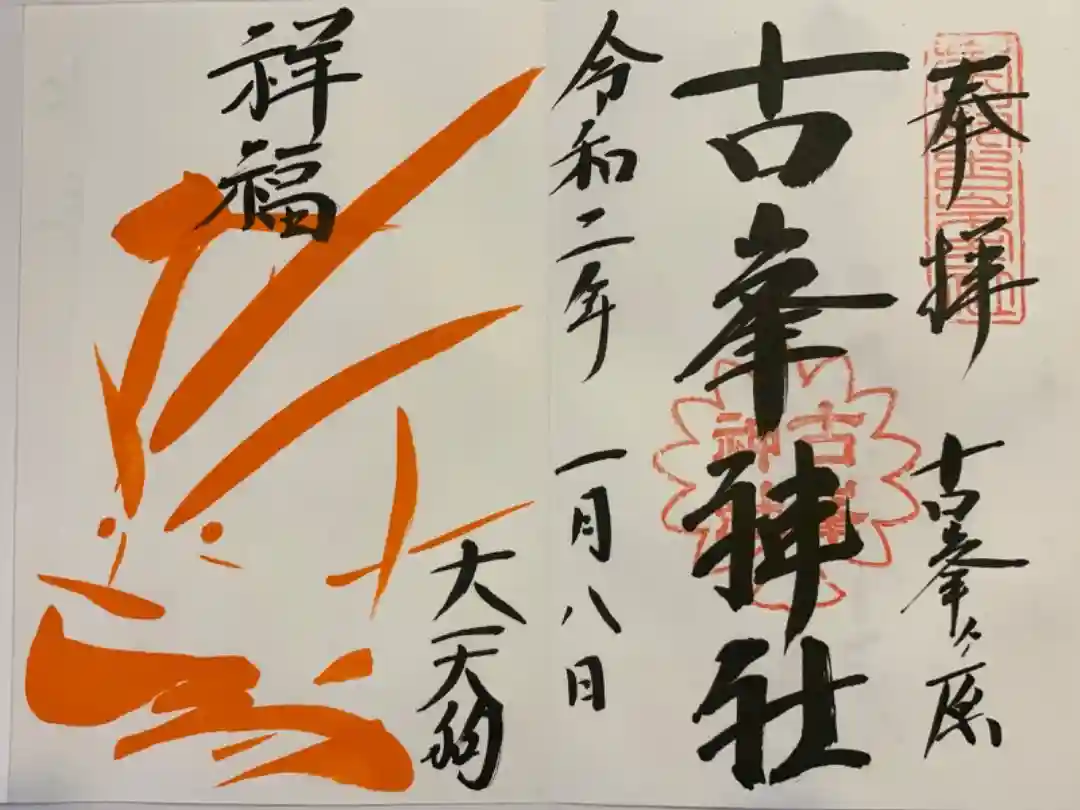 奉拝
古峯ヶ原
古峯神社
令和二年
一月八日
祥福
大天狗
古
神